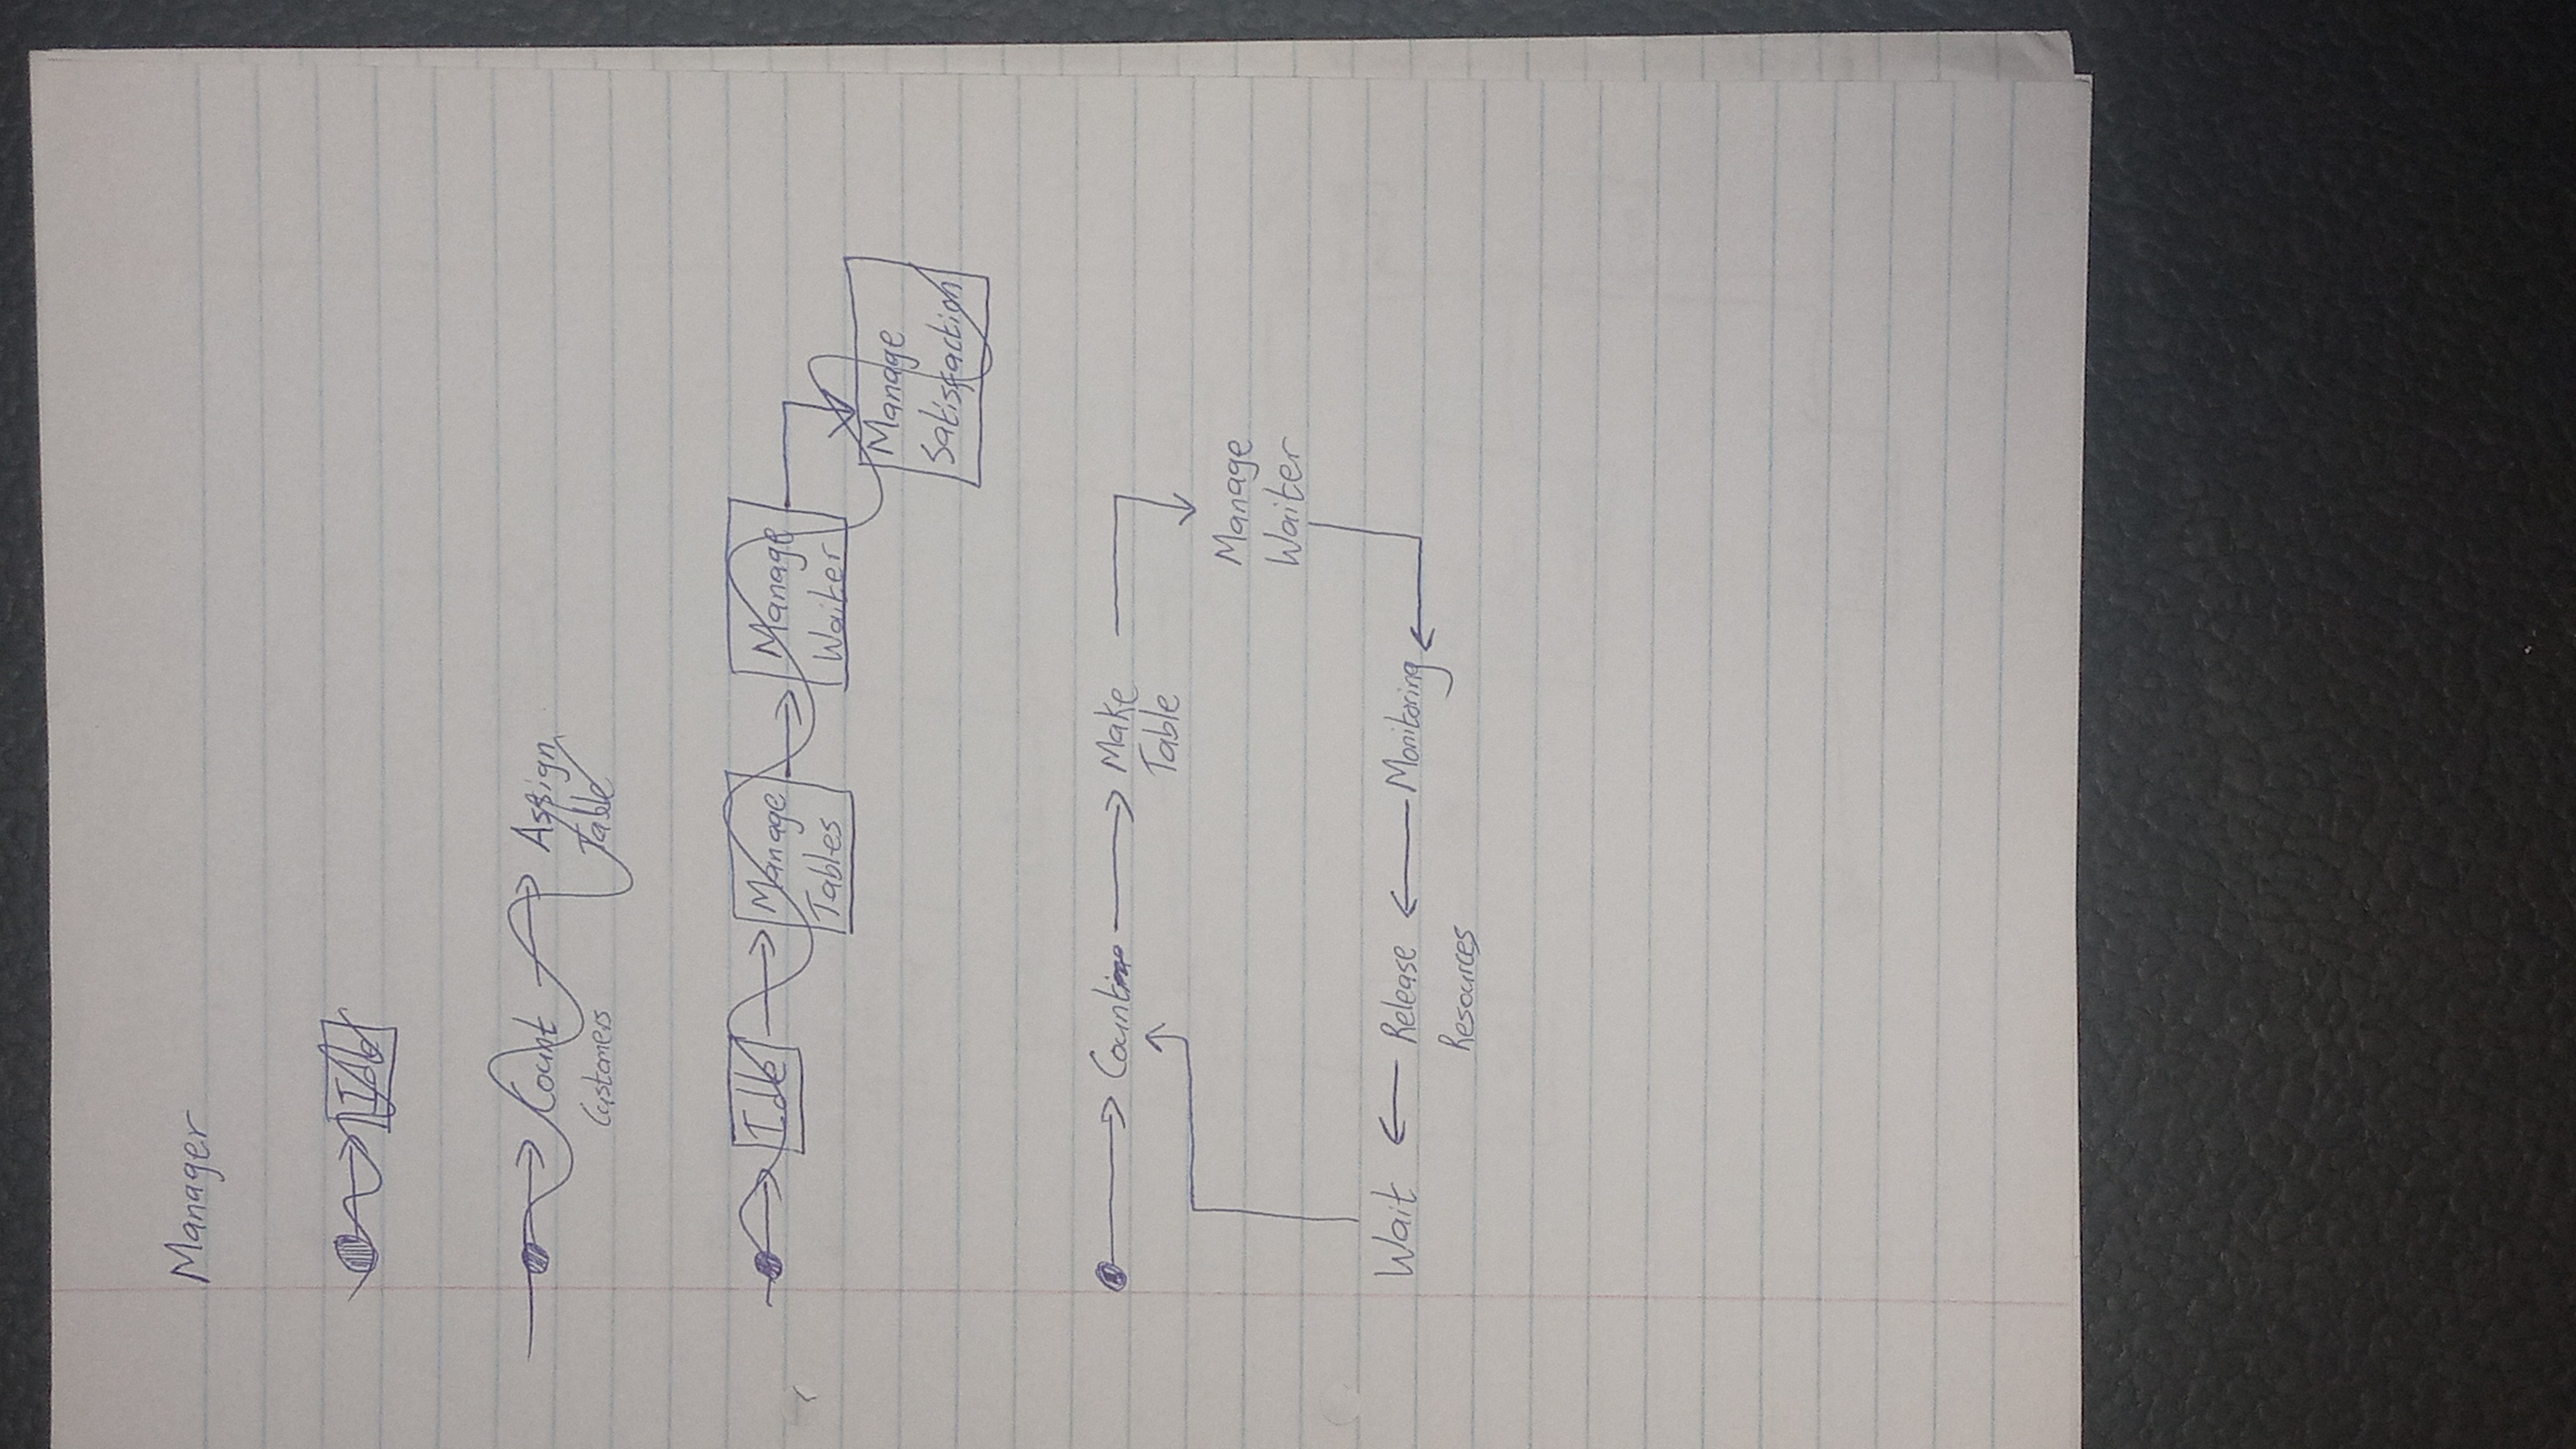 Manager
Idle
Count
Customers
Assign
Table
Idle
Manage
Tables
Manage
Waiter
Manage
Satisfaction
Counting
Make
Table
Manage
Waiter
Wait
Release
Resources
Monitoring